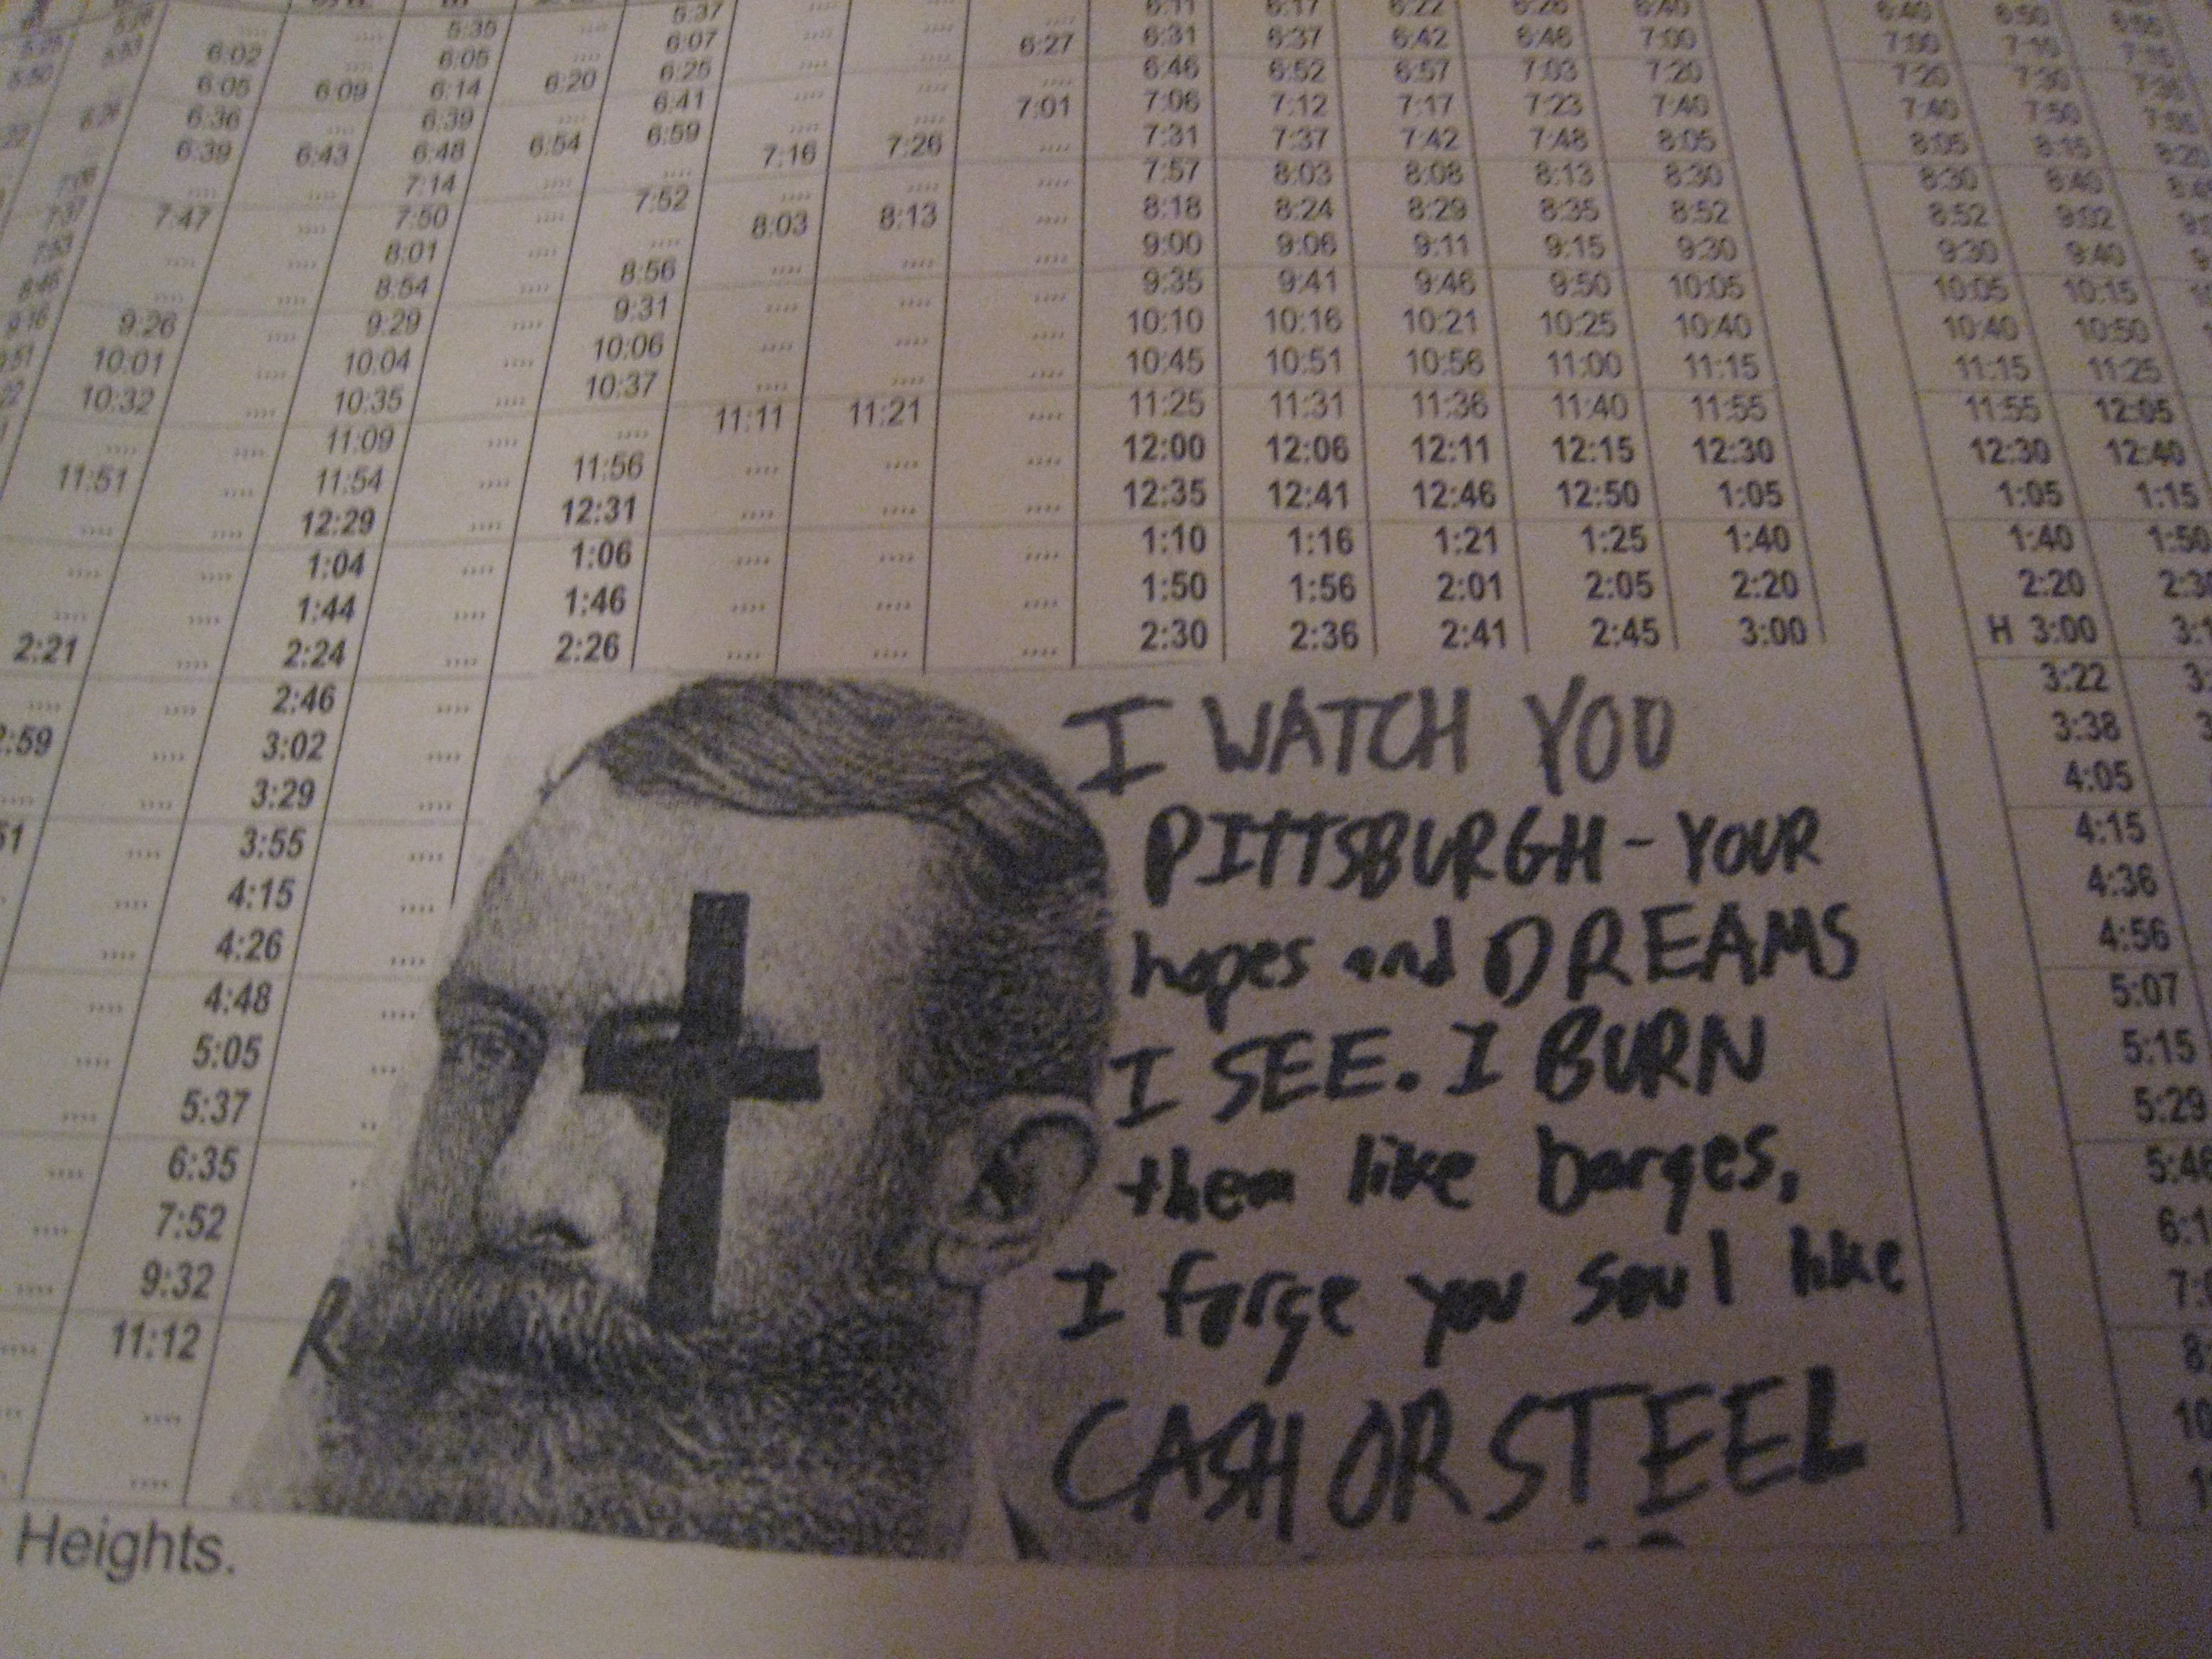 6:02 6:05 6:07 6:11 6:17 6:22 6:26 6:40 6:40 6:50
6:05 6:09 6:14 6:20 6:25 .... .... 6:27 6:31 6:37 6:42 6:46 7:00 7:00 7:10
6:36 .... 6:39 .... 6:41 .... .... .... 6:46 6:52 6:57 7:03 7:20 7:20 7:30
6:39 6:43 6:48 6:54 6:59 .... .... 7:01 7:06 7:12 7:17 7:23 7:40 7:40 7:50
.... .... 7:14 .... .... 7:16 7:26 .... 7:31 7:37 7:42 7:48 8:05 8:05 8:15
7:47 .... 7:50 .... 7:52 .... .... .... 7:57 8:03 8:08 8:13 8:30 8:30 8:40
.... .... 8:01 .... .... 8:03 8:13 .... 8:18 8:24 8:29 8:35 8:52 8:52 9:02
8:46 .... .... 8:54 .... 8:56 .... .... .... 9:00 9:06 9:11 9:15 9:30 9:30 9:40
9:16 9:26 .... 9:29 .... 9:31 .... .... .... 9:35 9:41 9:46 9:50 10:05 10:05 10:15
10:01 .... 10:04 .... 10:06 .... .... .... 10:10 10:16 10:21 10:25 10:40 10:40 10:50
10:32 .... 10:35 .... 10:37 .... .... .... 10:45 10:51 10:56 11:00 11:15 11:15 11:25
.... .... 11:09 .... .... 11:11 11:21 .... 11:25 11:31 11:36 11:40 11:55 11:55 12:05
11:51 .... 11:54 .... 11:56 .... .... .... 12:00 12:06 12:11 12:15 12:30 12:30 12:40
.... .... 12:29 .... 12:31 .... .... .... 12:35 12:41 12:46 12:50 1:05 1:05 1:15
.... .... 1:04 .... 1:06 .... .... .... 1:10 1:16 1:21 1:25 1:40 1:40 1:50
.... .... 1:44 .... 1:46 .... .... .... 1:50 1:56 2:01 2:05 2:20 2:20
2:21 .... 2:24 .... 2:26 .... .... .... 2:30 2:36 2:41 2:45 3:00 H 3:00
.... .... 2:46 .... 3:22
2:59 .... 3:02 .... 3:38
.... .... 3:29 .... 4:05
.... 3:55 .... 4:15
.... 4:15 .... 4:36
.... 4:26 .... 4:56
.... 4:48 .... 5:07
.... 5:05 ... 5:15
.... 5:37 .. 5:29
.... 6:35
.... 7:52
.... 9:32
.... 11:12
I WATCH YOU
PITTSBURGH - YOUR
hopes and DREAMS
I SEE. I BURN
them like barges,
I forge you soul like
CASH OR STEEL
R
Heights.